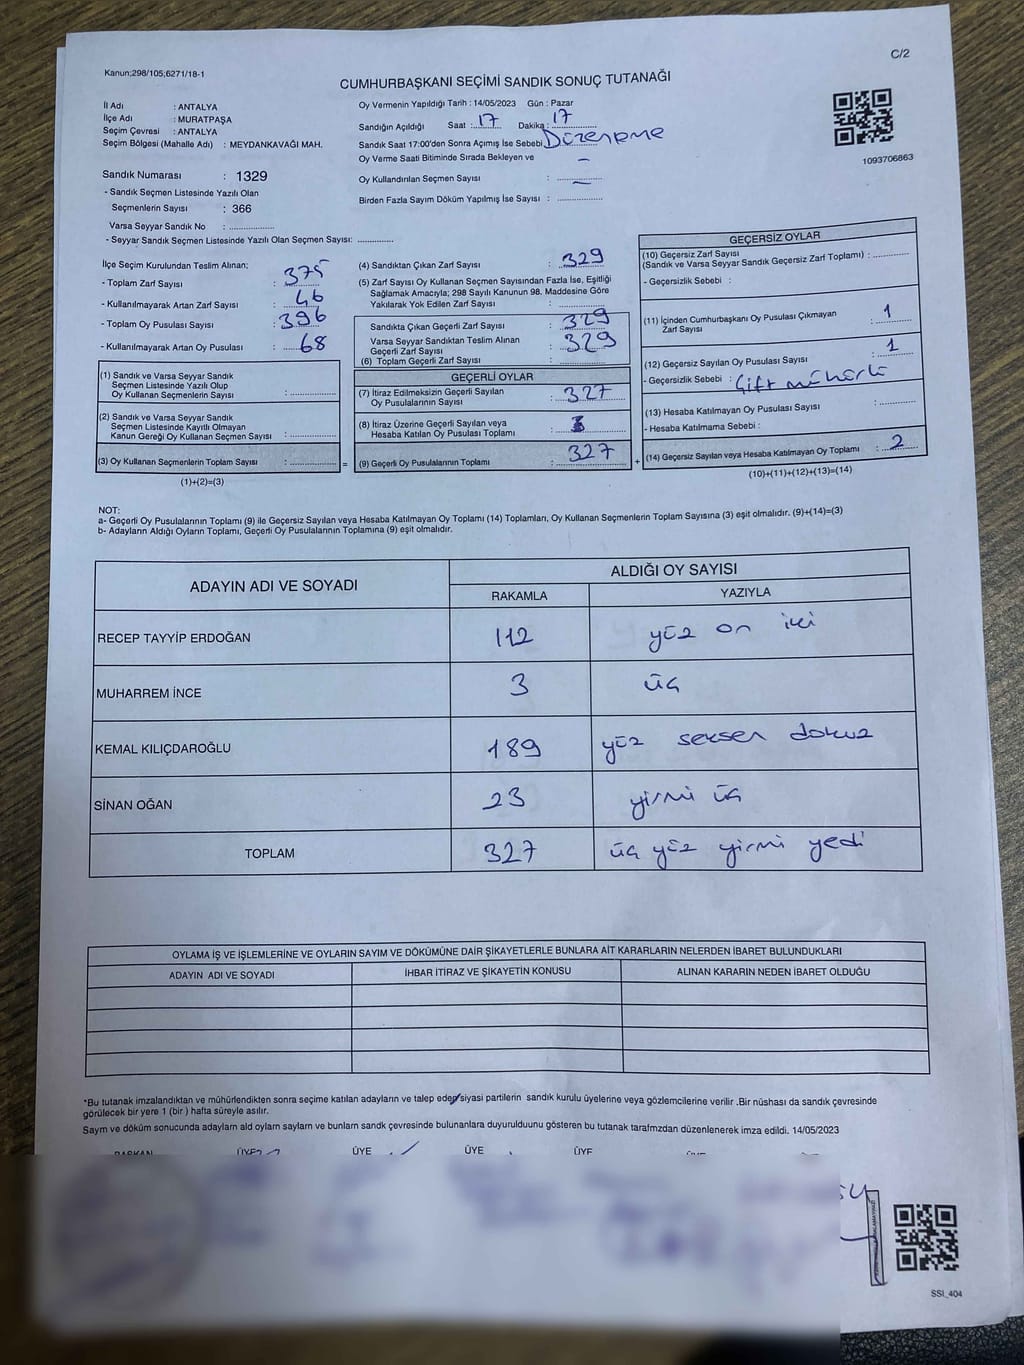 C/2
Kanun;298/105;6271/18-1
CUMHURBAŞKANI SEÇİMİ SANDIK SONUÇ TUTANAĞI
İl Adı : ANTALYA
İlçe Adı : MURATPAŞA
Seçim Çevresi : ANTALYA
Seçim Bölgesi (Mahalle Adı) : MEYDANKAVAĞI MAH.
Oy Vermenin Yapıldığı Tarih : 14/05/2023 Gün : Pazar
Sandığın Açıldığı Saat : 17 Dakika : 17
Sandık Saat 17:00'den Sonra Açımış İse Sebebi Düzenleme
Oy Verme Saati Bitiminde Sırada Bekleyen ve -
Oy Kullandırılan Seçmen Sayısı : -
Birden Fazla Sayım Döküm Yapılmış İse Sayısı :
1093706863
Sandık Numarası : 1329
- Sandık Seçmen Listesinde Yazılı Olan
Seçmenlerin Sayısı : 366
Varsa Seyyar Sandık No :
- Seyyar Sandık Seçmen Listesinde Yazılı Olan Seçmen Sayısı:
İlçe Seçim Kurulundan Teslim Alınan;
- Toplam Zarf Sayısı : 375
- Kullanılmayarak Artan Zarf Sayısı : 46
- Toplam Oy Pusulası Sayısı : 396
- Kullanılmayarak Artan Oy Pusulası : 68
(1) Sandık ve Varsa Seyyar Sandık
Seçmen Listesinde Yazılı Olup
Oy Kullanan Seçmenlerin Sayısı :
(2) Sandık ve Varsa Seyyar Sandık
Seçmen Listesinde Kayıtlı Olmayan
Kanun Gereği Oy Kullanan Seçmen Sayısı :
(3) Oy Kullanan Seçmenlerin Toplam Sayısı :
(1)+(2)=(3)
(4) Sandıktan Çıkan Zarf Sayısı : 329
(5) Zarf Sayısı Oy Kullanan Seçmen Sayısından Fazla İse, Eşitliği
Sağlamak Amacıyla; 298 Sayılı Kanunun 98. Maddesine Göre
Yakılarak Yok Edilen Zarf Sayısı :
Sandıkta Çıkan Geçerli Zarf Sayısı : 329
Varsa Seyyar Sandıktan Teslim Alınan
Geçerli Zarf Sayısı : 329
(6) Toplam Geçerli Zarf Sayısı :
=
GEÇERLİ OYLAR
(7) İtiraz Edilmeksizin Geçerli Sayılan
Oy Pusulalarının Sayısı : 327
(8) İtiraz Üzerine Geçerli Sayılan veya
Hesaba Katılan Oy Pusulası Toplamı :
(9) Geçerli Oy Pusulalarının Toplamı : 327
+
GEÇERSİZ OYLAR
(10) Geçersiz Zarf Sayısı
(Sandık ve Varsa Seyyar Sandık Geçersiz Zarf Toplamı) :
- Geçersizlik Sebebi :
(11) İçinden Cumhurbaşkanı Oy Pusulası Çıkmayan
Zarf Sayısı : 1
(12) Geçersiz Sayılan Oy Pusulası Sayısı : 1
- Geçersizlik Sebebi : Çift mühürlü
(13) Hesaba Katılmayan Oy Pusulası Sayısı :
- Hesaba Katılmama Sebebi :
(14) Geçersiz Sayılan veya Hesaba Katılmayan Oy Toplamı : 2
(10)+(11)+(12)+(13)=(14)
NOT:
a- Geçerli Oy Pusulalarının Toplamı (9) ile Geçersiz Sayılan veya Hesaba Katılmayan Oy Toplamı (14) Toplamları, Oy Kullanan Seçmenlerin Toplam Sayısına (3) eşit olmalıdır. (9)+(14)=(3)
b- Adayların Aldığı Oyların Toplamı, Geçerli Oy Pusulalarının Toplamına (9) eşit olmalıdır.
ADAYIN ADI VE SOYADI ALDIĞI OY SAYISI
RAKAMLA YAZIYLA
RECEP TAYYİP ERDOĞAN 112 yüz on iki
MUHARREM İNCE 3 üç
KEMAL KILIÇDAROĞLU 189 yüz seksen dokuz
SİNAN OĞAN 23 yirmi üç
TOPLAM 327 üç yüz yirmi yedi
OYLAMA İŞ VE İŞLEMLERİNE VE OYLARIN SAYIM VE DÖKÜMÜNE DAİR ŞİKAYETLERLE BUNLARA AİT KARARLARIN NELERDEN İBARET BULUNDUKLARI
ADAYIN ADI VE SOYADI İHBAR İTİRAZ VE ŞİKAYETİN KONUSU ALINAN KARARIN NEDEN İBARET OLDUĞU
*Bu tutanak imzalandıktan ve mühürlendikten sonra seçime katılan adayların ve talep eden siyasi partilerin sandık kurulu üyelerine veya gözlemcilerine verilir .Bir nüshası da sandık çevresinde
görülecek bir yere 1 (bir ) hafta süreyle asılır.
Saym ve döküm sonucunda adaylarn ald oylarn saylarn ve bunlarn sandk çevresinde bulunanlara duyurulduunu gösteren bu tutanak tarafmzdan düzenlenerek imza edildi. 14/05/2023
BAŞKAN ÜYE ÜYE ÜYE ÜYE
SSI_404